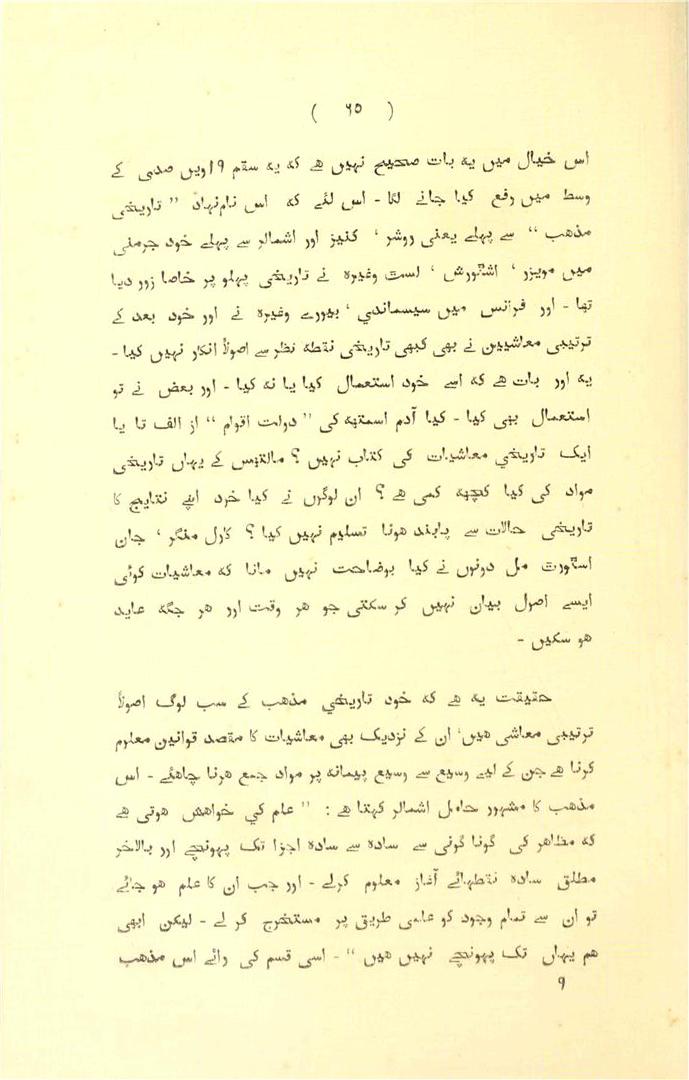 ( ۶۵ )
اس خیال میں یہ بات صحیح نہیں ہے کہ یہ سقم ۱۹ویں صدی کے
وسط میں رفع کیا جانے لگا - اس لئے کہ اس نام‌نہاد ” تاریخی
مذہب “ سے پہلے یعنی روشر ‘ کنیز اور اشمالر سے پہلے خود جرمنی
میں مویزر ‘ اشٹورش ‘ لسٹ وغیرہ نے تاریخی پہلو پر خاصا زور دیا
تھا - اور فرانس میں سیسماندی ‘ بیورے وغیرہ نے اور خود بعد کے
ترتیبی معاشیین نے بھی کبھی تاریخی نقطہ نظر سے اصولاً انکار نہیں کیا -
یہ اور بات ہے کہ اسے خود استعمال کیا یا نہ کیا - اور بعض نے تو
استعمال بھی کیا - کیا آدم اسمتھ کی ” دولت اقوام “ از الف تا یا
ایک تاریخی معاشیات کی کتاب نہیں ؟ مالتھس کے یہاں تاریخی
مواد کی کیا کچھ کمی ہے ؟ ان لوگوں نے کیا خود اپنے نتایج کا
تاریخی حالات سے پابند ہونا تسلیم نہیں کیا ؟ کارل منگر ‘ جان
اسٹورٹ مل دونوں نے کیا بوضاحت نہیں مانا کہ معاشیات کوئی
ایسے اصول بیان نہیں کر سکتی جو ہر وقت اور ہر جگہ عاید
ہو سکیں -
حقیقت یہ ہے کہ خود تاریخی مذہب کے سب لوگ اصولاً
ترتیبی معاشی ہیں‘ ان کے نزدیک بھی معاشیات کا مقصد قوانین معلوم
کرنا ہے جن کے لیے وسیع سے وسیع پیمانہ پر مواد جمع ہونا چاہئے - اس
مذہب کا مشہور حامل اشمالر کہتا ہے : ” علم کی خواہش ہوتی ہے
کہ مظاہر کی گونا گونی سے سادہ سے سادہ اجزا تک پہونچے اور بالآخر
مطلق سادہ نقطہائے آغاز معلوم کرلے - اور جب ان کا علم ہو جائے
تو ان سے تمام وجود کو علمی طریق پر مستخرج کر لے - لیکن ابھی
ہم یہاں تک پہونچے نہیں ہیں “ - اسی قسم کی رائے اس مذہب
۹